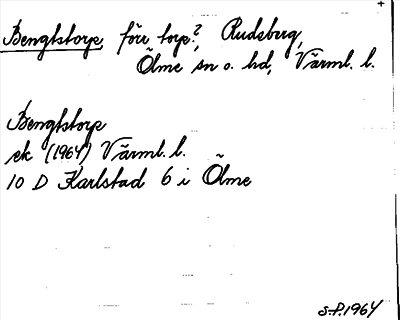 Bengtstorp, förr torp?, Rudsberg,
Ölme sn o. hd, Värml. l.
Bengtstorp
ek (1964) Värml. l.
10 D Karlstad 6 i Ölme
S-P. 1964